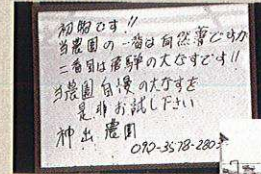 初物です!!
当農園の一番は自然薯ですが
二番目は飛騨の大なすです!!
当農園自慢の大なすを
是非お試し下さい
神出農園
090-3578-2803